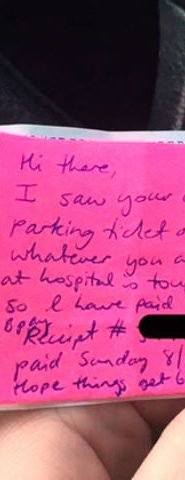 Hi there,
I saw your
parking ticket
whatever you
at hospital is
so I have paid
Bpay Receipt #
paid Sunday 8/
Hope things get